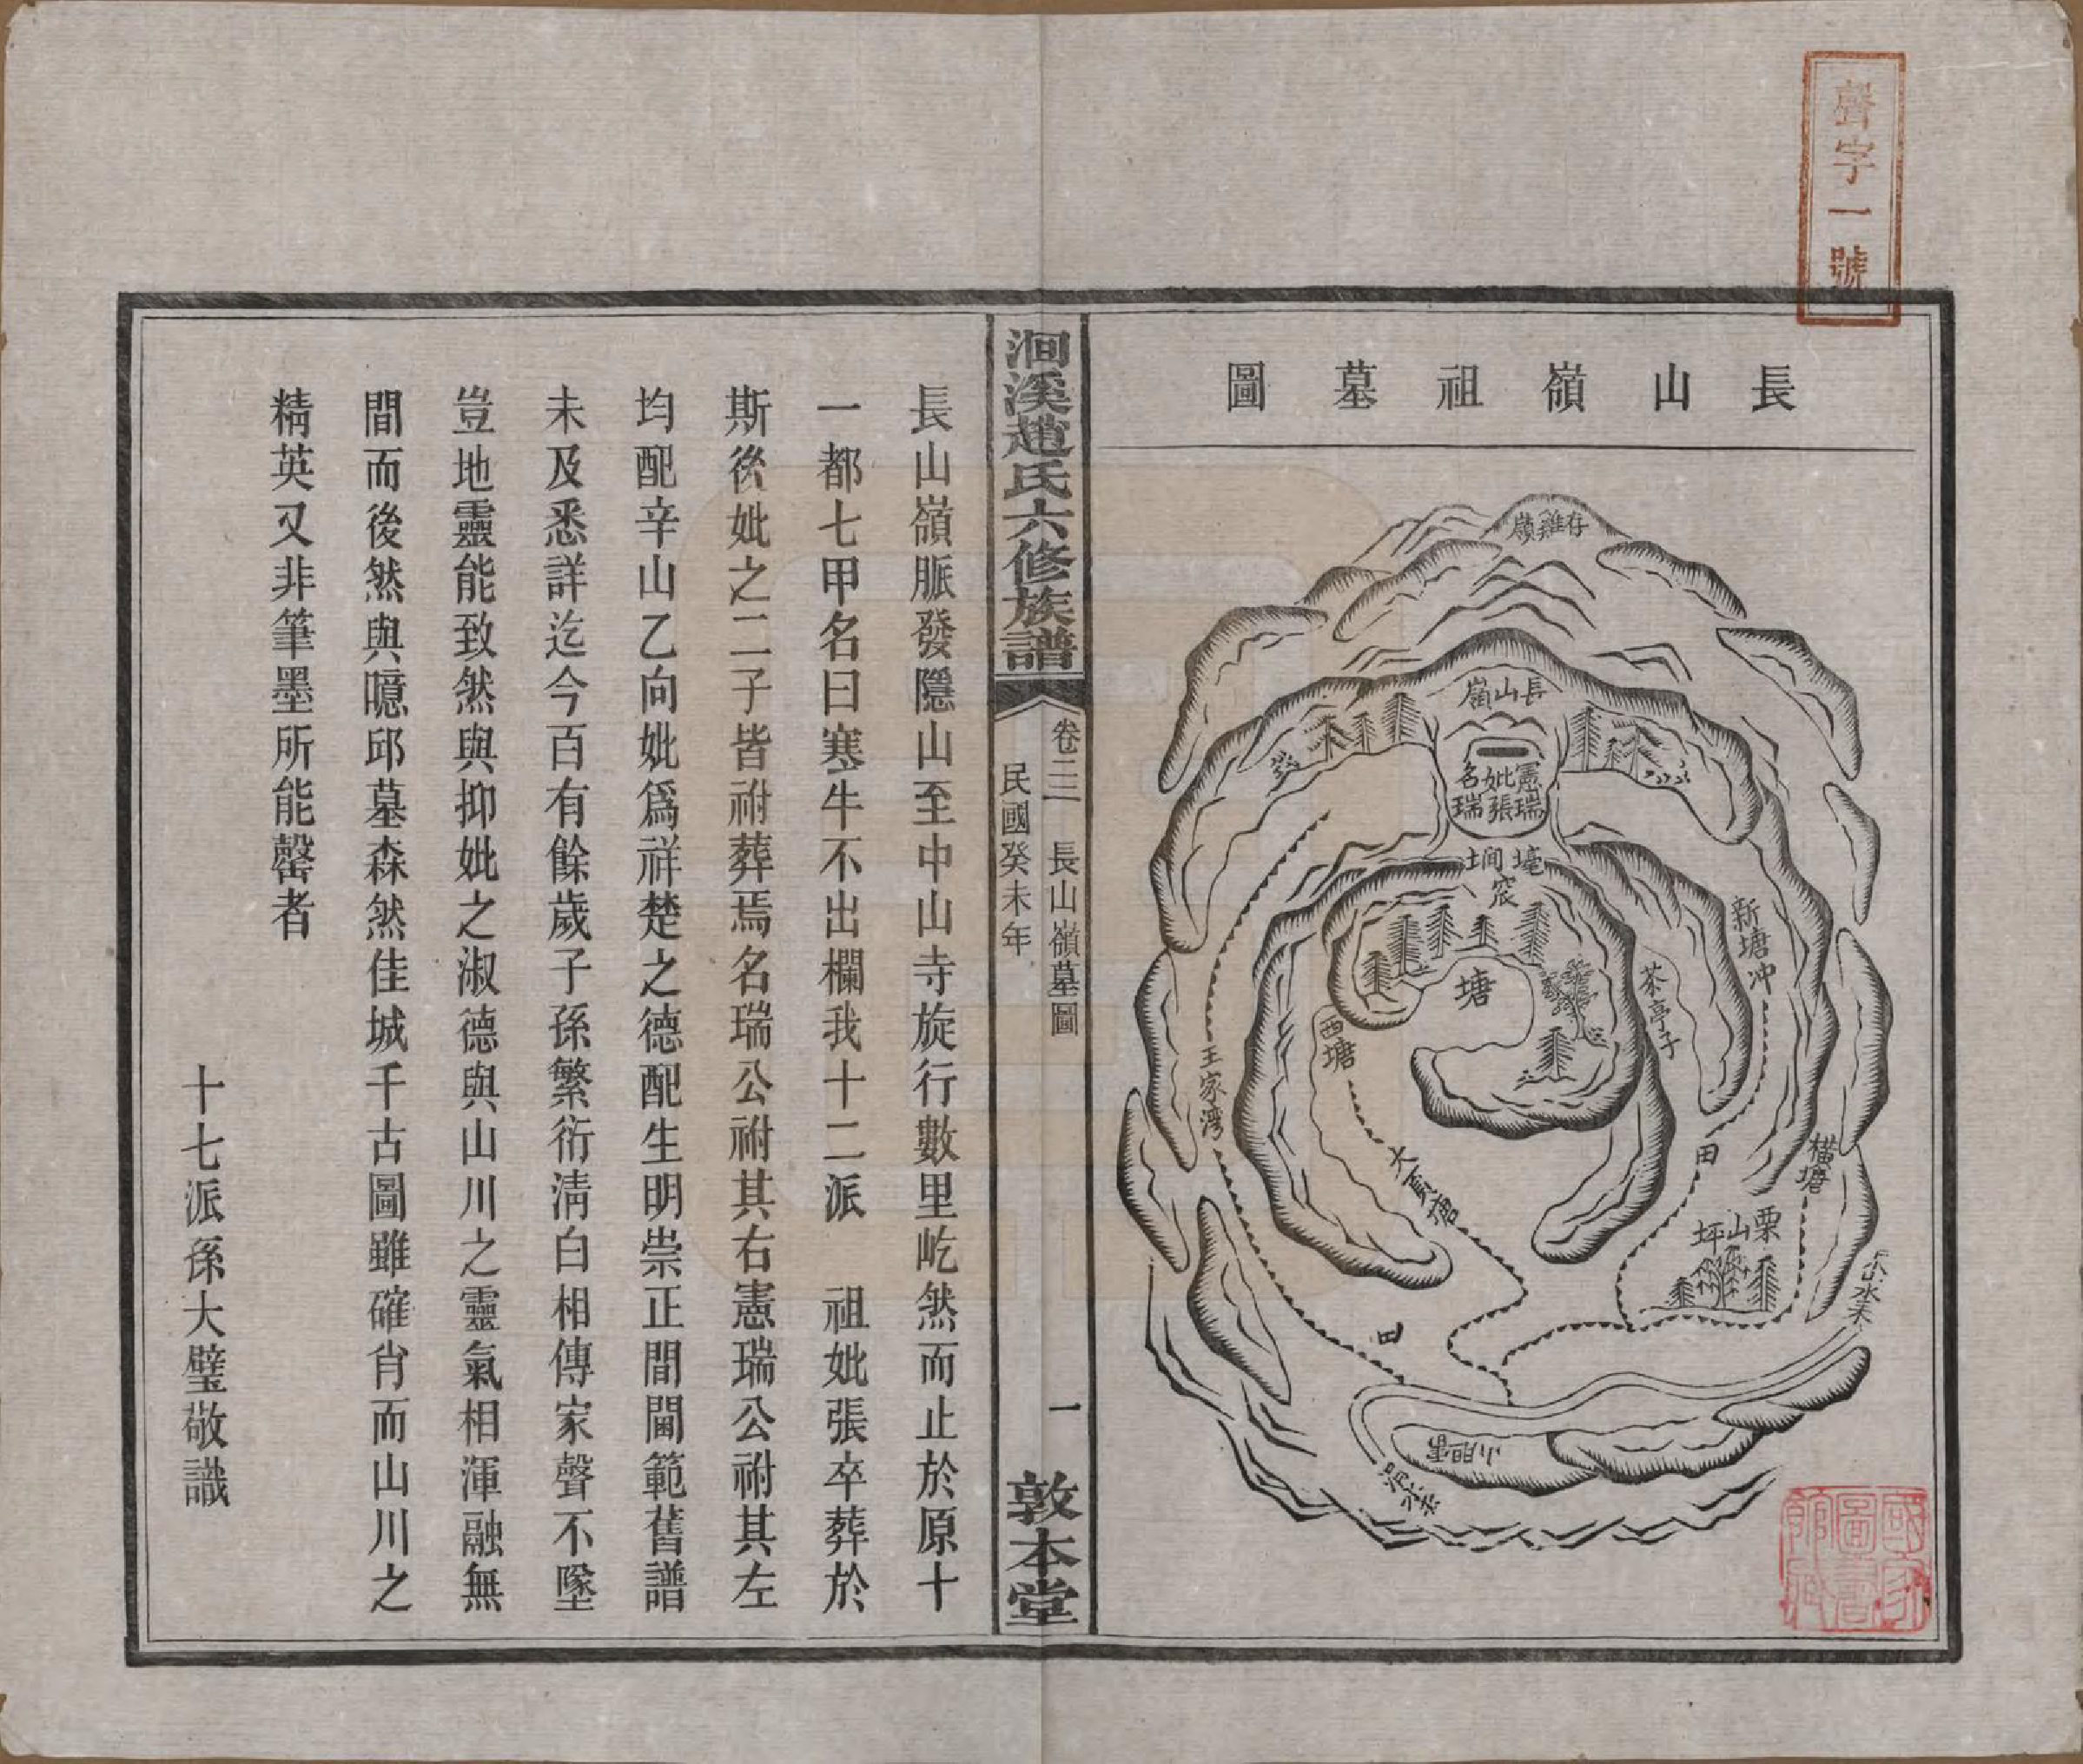 聲字一號
長山嶺祖墓圖
存雞嶺
長山嶺
憲瑞
妣張
名瑞
新塘冲
茶亭子
塘
西塘
王家灣
橫塘
田
栗山坪
國家圖書館藏
洄溪趙氏六修族譜
卷三
長山嶺墓圖
民國癸未年
一
敦本堂
長山嶺脈發隱山至中山寺旋行數里屹然而止於原十
一都七甲名曰寒牛不出欄我十二派 祖妣張卒葬於
斯後妣之二子皆祔葬焉名瑞公祔其右憲瑞公祔其左
均配辛山乙向妣爲祥楚之德配生明崇正間閫範舊譜
未及悉詳迄今百有餘歲子孫繁衍淸白相傳家聲不墜
豈地靈能致然與抑妣之淑德與山川之靈氣相渾融無
間而後然與噫邱墓森然佳城千古圖雖確肖而山川之
精英又非筆墨所能罄者
十七派孫大璧敬識